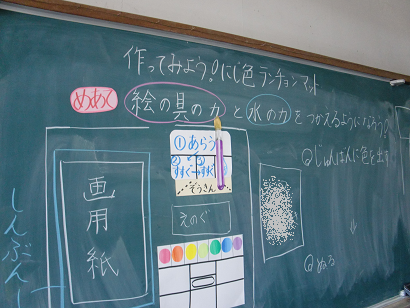 作ってみよう!にじ色ランチョンマット
めあて 絵の具の力と水の力をつかえるようになろう!
①あらう
②すすぐ ③すすぐ
ぞうきん
えのぐ
画用紙
しんぶんし
◎じゅんばんに色を出す
◎ぬる